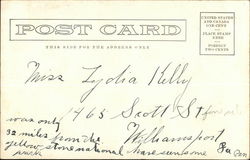 POST CARD
THIS SIDE FOR THE ADDRESS ONLY
UNITED STATES
AND CANADA
ONE CENT
PLACE STAMP
HERE
FOREIGN
TWO CENTS
Miss Lydia Kelly
1465 Scott St
Williamsport
Pa
was only
32 miles from the
yellow stone national
park
have some